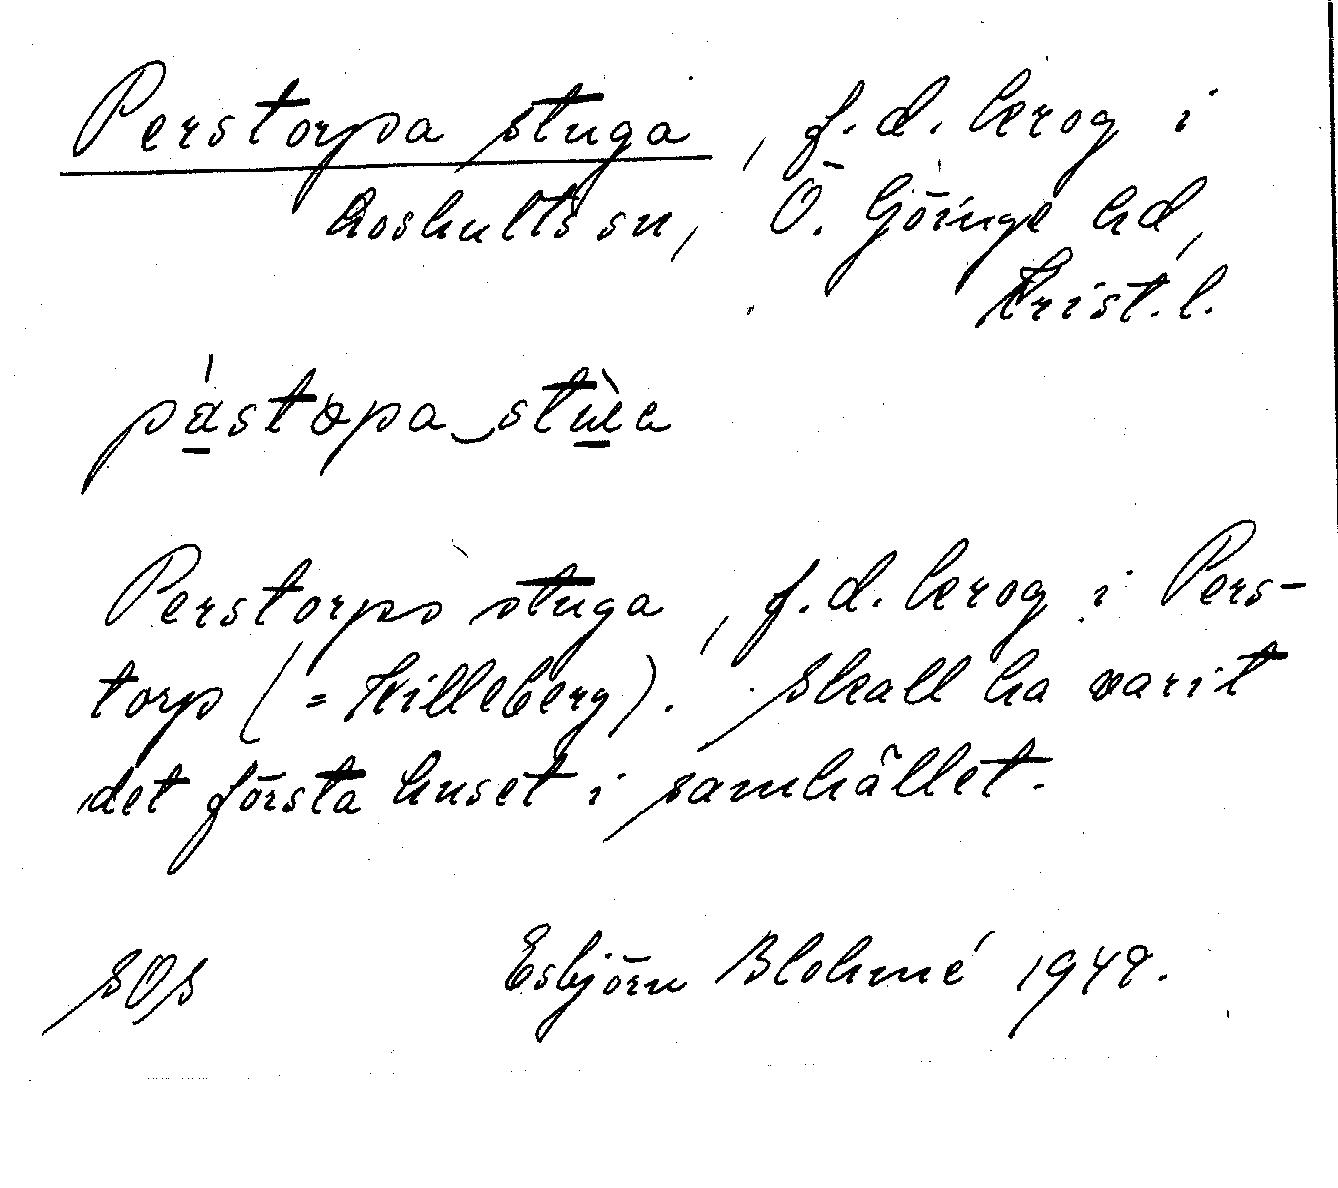 Perstorpa stuga, f.d. krog i
Loshults sn, Ö. Göinge hd,
Krist. l.
pástopa stùa
Perstorps stuga, f.d. krog i Pers-
torp (= Killeberg). Skall ha varit
det första huset i samhället.
SOS Esbjörn Blohmé 1949.